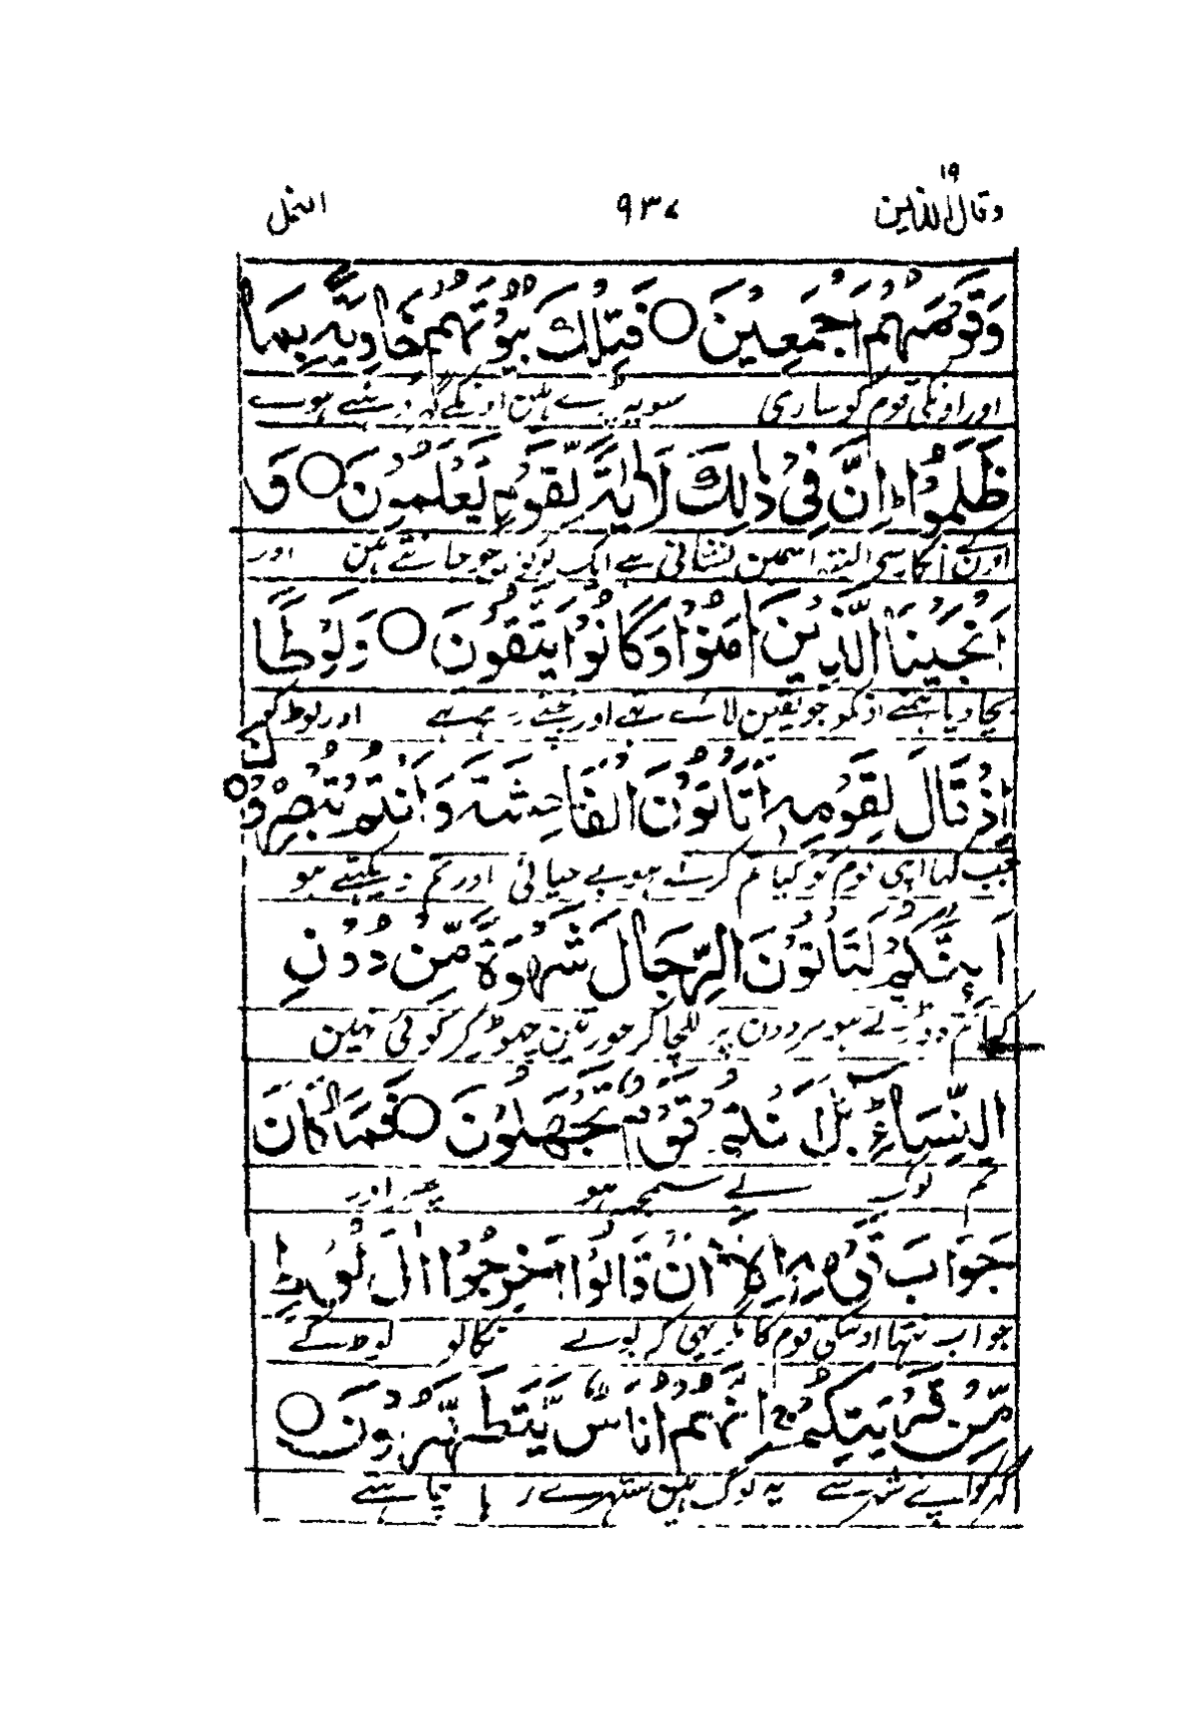 ١٩
وقال الذین ٩٣٧ النمل
وَقَوْمَهُمْ اَجْمَعِیْنَ ○ فَتِلْكَ بُیُوْتُهُمْ خَاوِیَةًۢ بِمَا
اور اونکی قوم کو ساری سو یہ پڑے ہین اونکے گھر ڈہئے ہوے
ظَلَمُوْا ؕ اِنَّ فِیْ ذٰلِكَ لَاٰیَةً لِّقَوْمٍ یَّعْلَمُوْنَ ○ وَ
اونکے انکار سے البتہ اسمین نشانی ہے ایک لوگونکو جو جانتے ہین اور
اَنْجَیْنَا الَّذِیْنَ اٰمَنُوْا وَكَانُوْا یَتَّقُوْنَ ○ وَلُوْطًا
بچا دیا ہمنے اونکو جو یقین لائے تھے اور بچتے رہے تھے اور لوط کو
اِذْ قَالَ لِقَوْمِهٖۤ اَتَاْتُوْنَ الْفَاحِشَةَ وَاَنْتُمْ تُبْصِرُوْنَ ○
جب کہا اپنی قوم کو کیا تم کرتے ہو بے حیائی اور تم دیکھتے ہو
اَىِٕنَّكُمْ لَتَاْتُوْنَ الرِّجَالَ شَهْوَةً مِّنْ دُوْنِ
کیا تم دوڑتے ہو مردون پر للچا کر عورتین چھوڑ کر کوئی نہین
النِّسَآءِ ؕ بَلْ اَنْتُمْ قَوْمٌ تَجْهَلُوْنَ ○ فَمَا كَانَ
تم لوگ بے سمجھ ہو پھر اور
جَوَابَ قَوْمِهٖۤ اِلَّاۤ اَنْ قَالُوْۤا اَخْرِجُوْۤا اٰلَ لُوْطٍ
جواب نتھا اوسکی قوم کا مگر یہی کہ بولے نکالو لوط کے
مِّنْ قَرْیَتِكُمْ ۚ اِنَّهُمْ اُنَاسٌ یَّتَطَهَّرُوْنَ ○
گھر کو اپنے شہر سے یہ لوگ ہین ستھرے رہا چاہتے